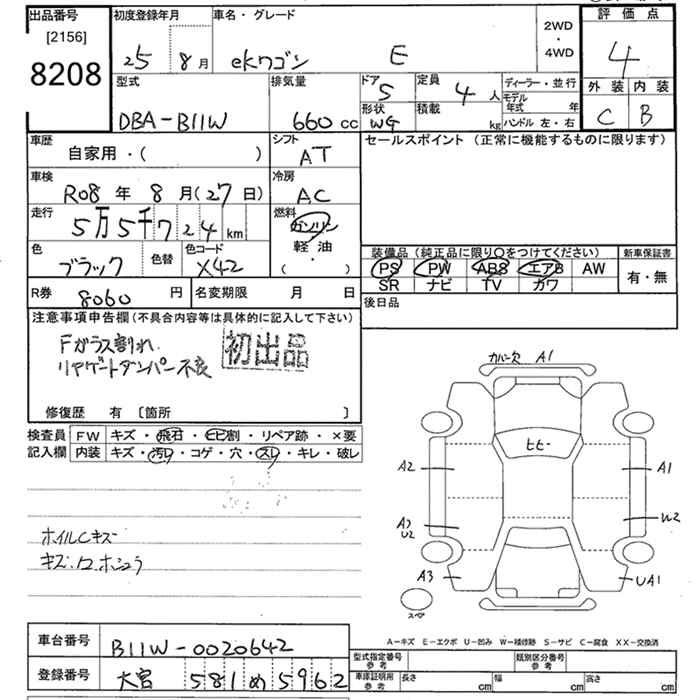 出品番号
[2156]
8208
初度登録年月
25 8 月
車名・グレード
ekワゴン E
2WD
・
4WD
評価点
4
外装 内装
C B
型式
DBA-B11W
排気量
660 cc
ドア
5
形状
WG
定員
4 人
積載
kg
ディーラー・並行
モデル年式 年
ハンドル 左・右
車歴
自家用・( )
シフト
AT
セールスポイント (正常に機能するものに限ります)
車検
R08 年 8 月(27 日)
冷房
AC
走行
5万5千724 km
燃料
ガソリン
軽油
・
( )
色
ブラック
色替
色コード
X42
装備品 (純正品に限り〇をつけてください)
PS PW ABS エアB AW
SR ナビ TV カワ
新車保証書
有・無
R券
8060 円
名変期限 月 日
後日品
注意事項申告欄 (不具合内容等は具体的に記入して下さい)
Fガラス割れ
リヤゲートダンパー不良
初出品
修復歴 有 〔箇所 〕
検査員
記入欄
FW キズ・飛石・ヒビ割・リペア跡・×要
内装 キズ・汚レ・コゲ・穴・スレ・キレ・破レ
ホイルCキズ
カバー欠 A1
ヒビ
A2
A1
A3
U2
W2
A3
UA1
スペア
A-キズ E-エクボ U-凹み W-補修跡 S-サビ C-腐食 XX-交換済
車台番号
B11W-0020642
登録番号
大宮 581 め 5962
型式指定番号
参考
類別区分番号
参考
車庫証明用
参考
長さ cm
幅 cm
高さ cm